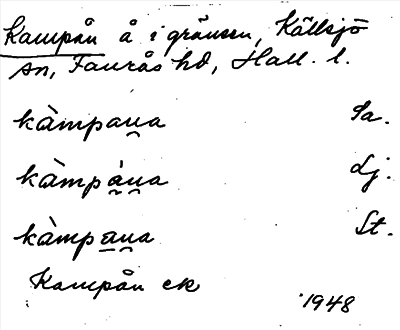 Kampån å i gränsen, Källsjö
sn, Faurås hd, Hall. l.
kàmpana Sa.
kàmpána Lj.
kàmpana St.
Kampån ek
1948